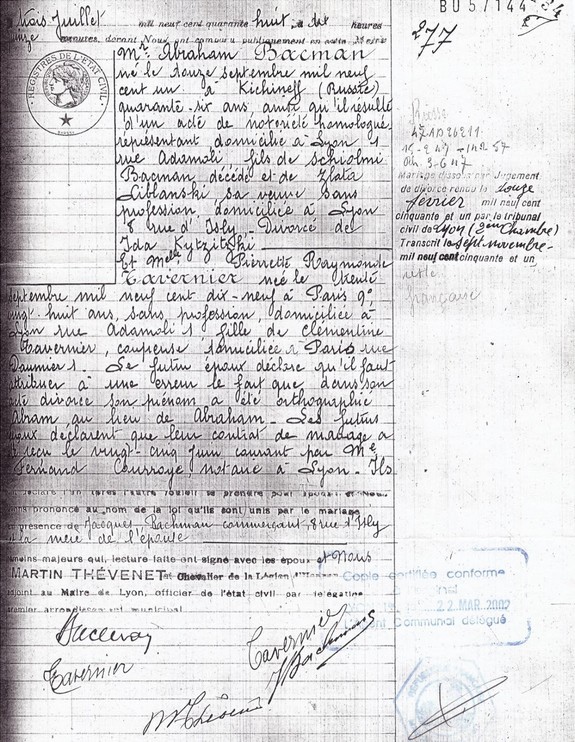 BU5/144
277
trois juillet mil neuf cent quarante huit, à dix heures
minutes, devant Nous ont comparu publiquement en cette Mairie
RÉPUBLIQUE FRANÇAISE
Mr. Abraham Bacman
né le douze septembre mil neuf
cent un à Kichineff (Russie)
quarante-six ans, ainsi qu'il résulte
d'un acte de notoriété homologué,
représentant domicilié à Lyon
1 rue Adamoli, fils de Schiolmi
Bacman, décédé et de Zlata
Liblanski, sa veuve sans
profession, domiciliée à Lyon
8 rue d'Isly. Divorcé de
Ida Kytzitski
Et Melle Pierrette Raymonde
Tavernier née le trente
septembre mil neuf cent dix-neuf à Paris 9e
vingt-huit ans, sans profession, domiciliée à
Lyon rue Adamoli 1 fille de Clémentine
Tavernier, coupeuse domiciliée à Paris rue
Daumier 1. Le futur époux déclare qu'il faut
attribuer à une erreur le fait que dans son
acte divorce son prénom a été orthographié
Abram au lieu de Abraham. Les futurs
époux déclarent que leur contrat de mariage a
été reçu le vingt-cinq juin courant par Me
Fernand Courroye, notaire à Lyon. Ils
ont déclaré l'un après l'autre vouloir se prendre pour époux et Nous
avons prononcé au nom de la loi qu'ils sont unis par le mariage
en présence de Jacques Bachman commerçant, 8 rue d'Isly
et la mère de l'épouse
témoins majeurs qui, lecture faite ont signé avec les époux et Nous
MARTIN THÉVENET Chevalier de la Légion d'Honneur
adjoint au Maire de Lyon, officier de l'état civil par délégation
premier arrondissement municipal
Tavernier
Tavernier
Bachman
REGISTRES DE L'ETAT CIVIL
Mariage dissous par Jugement
de divorce rendu le douze
février mil neuf cent
cinquante et un par le tribunal
civil de Lyon (2eme Chambre)
Transcrit le sept novembre
mil neuf cent cinquante et un
française
Copie certifiée conforme
22 MAR. 2002
L'Agent Communal délégué